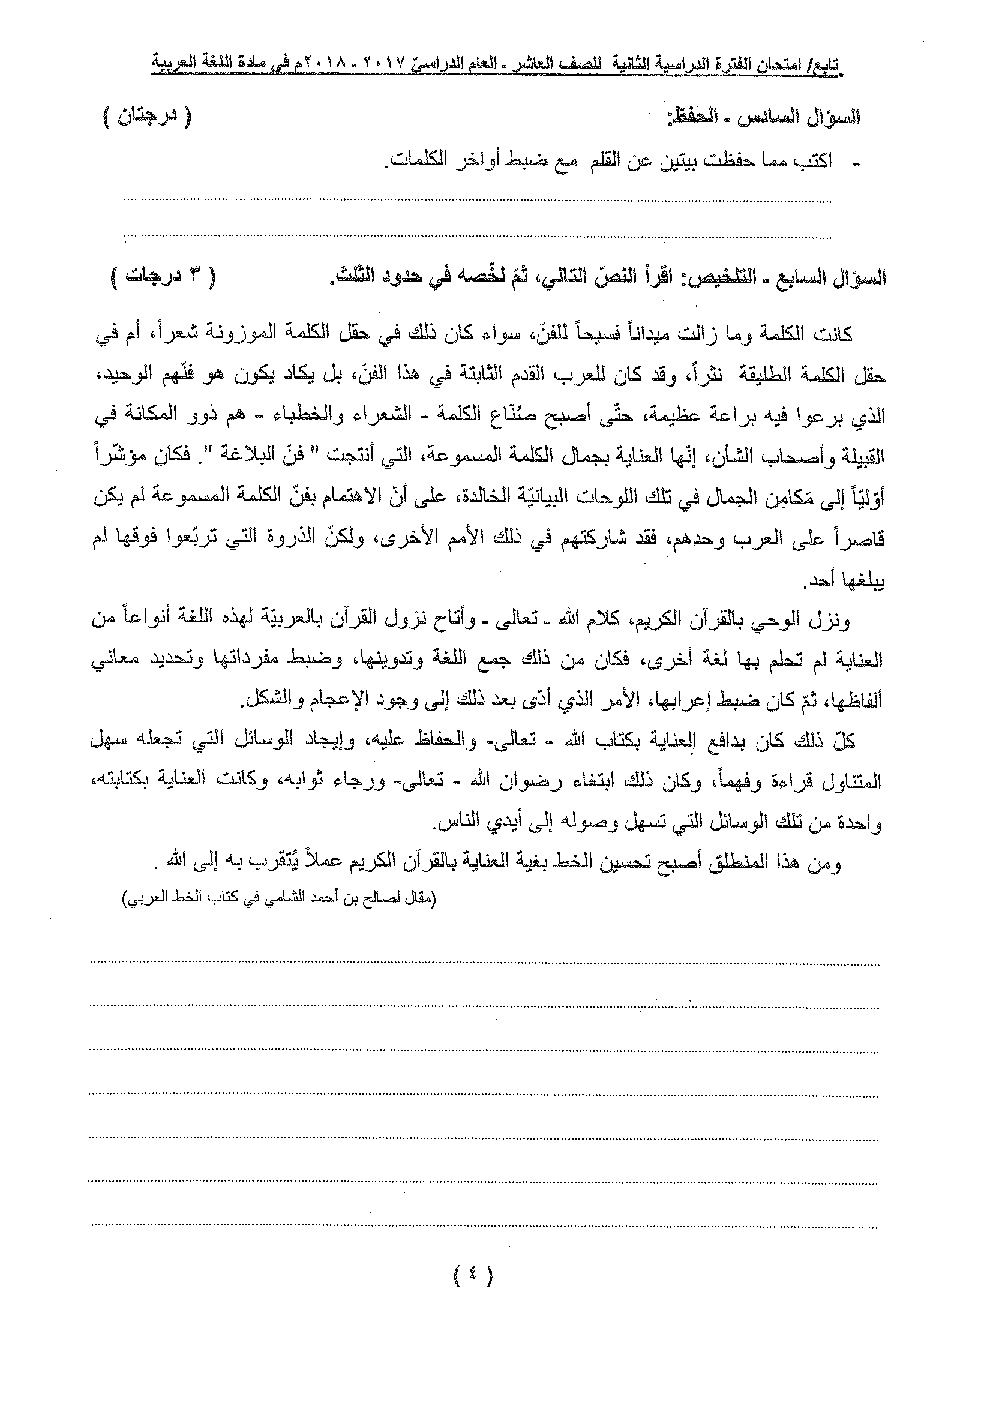 تابع/ امتحان الفترة الدراسية الثانية للصف العاشر - العام الدراسيّ ٢٠١٧ - ٢٠١٨م في مادة اللغة العربية
السؤال السادس - الحفظ: ( درجتان )
- اكتب مما حفظت بيتين عن القلم مع ضبط أواخر الكلمات.
السؤال السابع - التلخيص: اقرأ النصّ التالي، ثمّ لخّصه في حدود الثلث. ( ٣ درجات )
كانت الكلمة وما زالت ميداناً فسيحاً للفنّ، سواء كان ذلك في حقل الكلمة الموزونة شعراً، أم في
حقل الكلمة الطليقة نثراً، وقد كان للعرب القدم الثابتة في هذا الفنّ، بل يكاد يكون هو فنّهم الوحيد،
الذي برعوا فيه براعة عظيمة، حتّى أصبح صنّاع الكلمة - الشعراء والخطباء - هم ذوو المكانة في
القبيلة وأصحاب الشأن، إنّها العناية بجمال الكلمة المسموعة، التي أنتجت " فنّ البلاغة ". فكان مؤشّراً
أوّليّاً إلى مَكامِن الجمال في تلك اللوحات البيانيّة الخالدة، على أنّ الاهتمام بفنّ الكلمة المسموعة لم يكن
قاصراً على العرب وحدهم، فقد شاركتهم في ذلك الأمم الأخرى، ولكنّ الذروة التي تربّعوا فوقها لم
يبلغها أحد.
ونزل الوحي بالقرآن الكريم، كلام الله - تعالى - وأتاح نزول القرآن بالعربيّة لهذه اللغة أنواعاً من
العناية لم تحلم بها لغة أخرى، فكان من ذلك جمع اللغة وتدوينها، وضبط مفرداتها وتحديد معاني
ألفاظها، ثمّ كان ضبط إعرابها، الأمر الذي أدّى بعد ذلك إلى وجود الإعجام والشكل.
كلّ ذلك كان بدافع العناية بكتاب الله - تعالى- والحفاظ عليه، وإيجاد الوسائل التي تجعله سهل
المتناول قراءة وفهماً، وكان ذلك ابتغاء رضوان الله - تعالى- ورجاء ثوابه، وكانت العناية بكتابته،
واحدة من تلك الوسائل التي تسهل وصوله إلى أيدي الناس.
ومن هذا المنطلق أصبح تحسين الخط بغية العناية بالقرآن الكريم عملاً يُتقرب به إلى الله .
(مقال لصالح بن أحمد الشامي في كتاب، الخط العربي)
( ٤ )